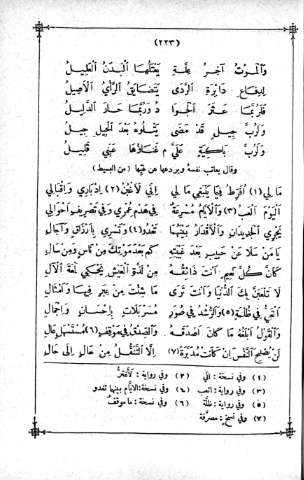 (٢٢٣)
وَالْمَوْتُ آخِرُ عِلَّةٍ يَعْتَلُّهَا الْبَدَنُ الْعَلِيلُ
لِدِفَاعِ دَائِرَةِ الرَّدَى يَتَضَايَقُ الرَّأْيُ الْأَصِيلُ
فَلَرُبَّمَا عَثَرَ الْجَوَا دُ وَرُبَّمَا حَارَ الدَّلِيلُ
وَلَرُبَّ جِيلٍ قَدْ مَضَى يَتْلُوهُ بَعْدَ الْجِيلِ جِيلُ
وَلَرُبَّ بَاكِيَةٍ عَلَيَّ م غَنَاؤُهَا عَنِّي قَلِيلُ
وقال يعاتب نفسه ويردعها عن غيها (من البسيط)
مَا لِي (١) أُفَرِّطُ فِيمَا يَنْبَغِي مَا لِي إِنِّي لَأُغْبَنُ (٢) إِدْبَارِي وَإِقْبَالِي
الْيَوْمَ أَلْعَبُ (٣) وَالْأَيَّامُ مُسْرِعَةٌ فِي هَدْمِ عُمْرِي وَفِي تَصْرِيفِ أَحْوَالِي
يَجْرِي الْجَدِيدَانِ وَالْأَقْدَارُ بَيْنَهُمَا (٤) وَتَسْرِي بِأَرْزَاقٍ وَآجَالِ
يَا مَنْ سَلَا عَنْ حَبِيبٍ بَعْدَ غَيْبَتِهِ كَمْ بَعْدَ مَوْتِكَ مِنْ نَاسٍ وَمِنْ سَالِ
كَأَنَّ كُلَّ نَعِيمٍ أَنْتَ ذَائِقُهُ مِنْ لَذَّةِ الْعَيْشِ يَحْكِي لَمْعَةَ الْآلِ
لَا تَلْعَبَنَّ بِكَ الدُّنْيَا وَأَنْتَ تَرَى مَا شِئْتَ مِنْ عِبَرٍ فِيهَا وَأَمْثَالِ
الْغَيُّ فِي ظُلْمَةٍ (٥) وَالرُّشْدُ فِي صُوَرٍ مُسَرْبَلَاتٍ بِإِحْسَانٍ وَإِجْمَالِ
وَالْقَوْلُ أَبْلَغُهُ مَا كَانَ أَصْدَقَهُ وَالصِّدْقُ فِي مَوْقِفٍ (٦) مُسْتَسْهَلٍ عَالِ
لَنْ يُصْلِحَ النَّفْسَ إِنْ كَانَتْ مُدَبَّرَةً (٧) إِلَّا التَّنَقُّلُ مِنْ حَالٍ إِلَى حَالِ
(١) وفي نسخة: (٢) وفي رواية:
(٣) وفي رواية: العب (٤) وفي نسخة: الايام بينها تغدو
(٥) وفي رواية: ظلَّة (٦) وفي نسخة: ما موقف
(٧) وفي نسخ: مصرّفة